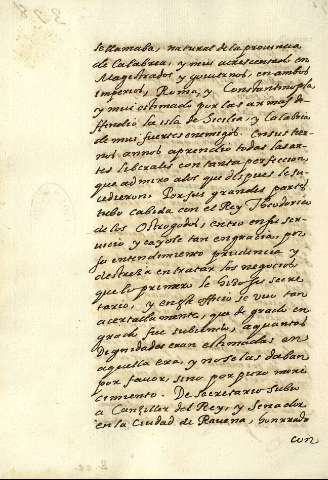 se llamaba, natural de la provincia
de Calabria, y mui acrescentado en
Magestrados y goviernos, en ambos
Imperios, Roma, y Constantinopla,
y mui estimado por las armas de
ffendio la isla de Sicilia, y Calabria
de mui fuertes enemigos. Con sus tier
nos annos aprendio todas las ar
tes liberales con tanta perfeccion,
que admiro a los que dispues le su
cedieron. Por sus grandes partes
tubo cabida con el Rey Theodorico
de los Ostrogodos, entro en su ser
vicio y cayole tan en gracia, por
su entendimiento prudencia y
destreza en tratar los negocios
que lo primero le hizo su secre
tario, y en este officio se vuo tan
acertadamente, que de grado en
grado fue subiendo, a quantas
Dignidades eran estimadas en
aquella era, y no se las daban
por favor, sino por puro mere
cimiento. De secretario subio
a Canziller del Rey, y Senador
en la Ciudad de Ravena, honrrado
con